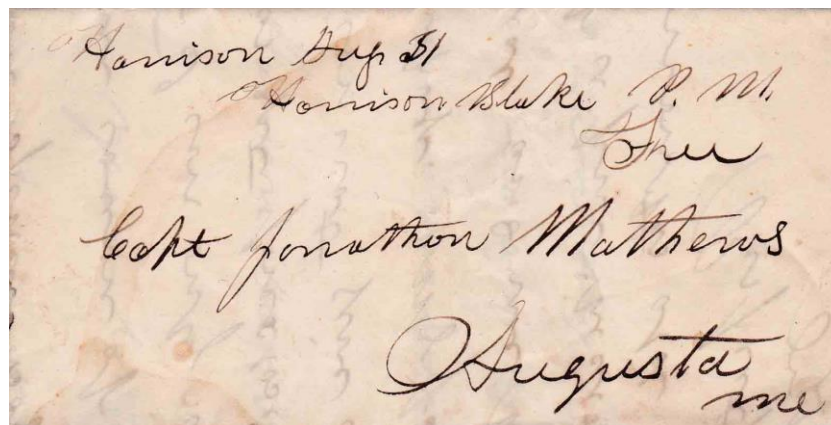 Harrison Aug 31
Harrison Blake P. M.
Free
Capt Jonathon Mathews
Augusta
me